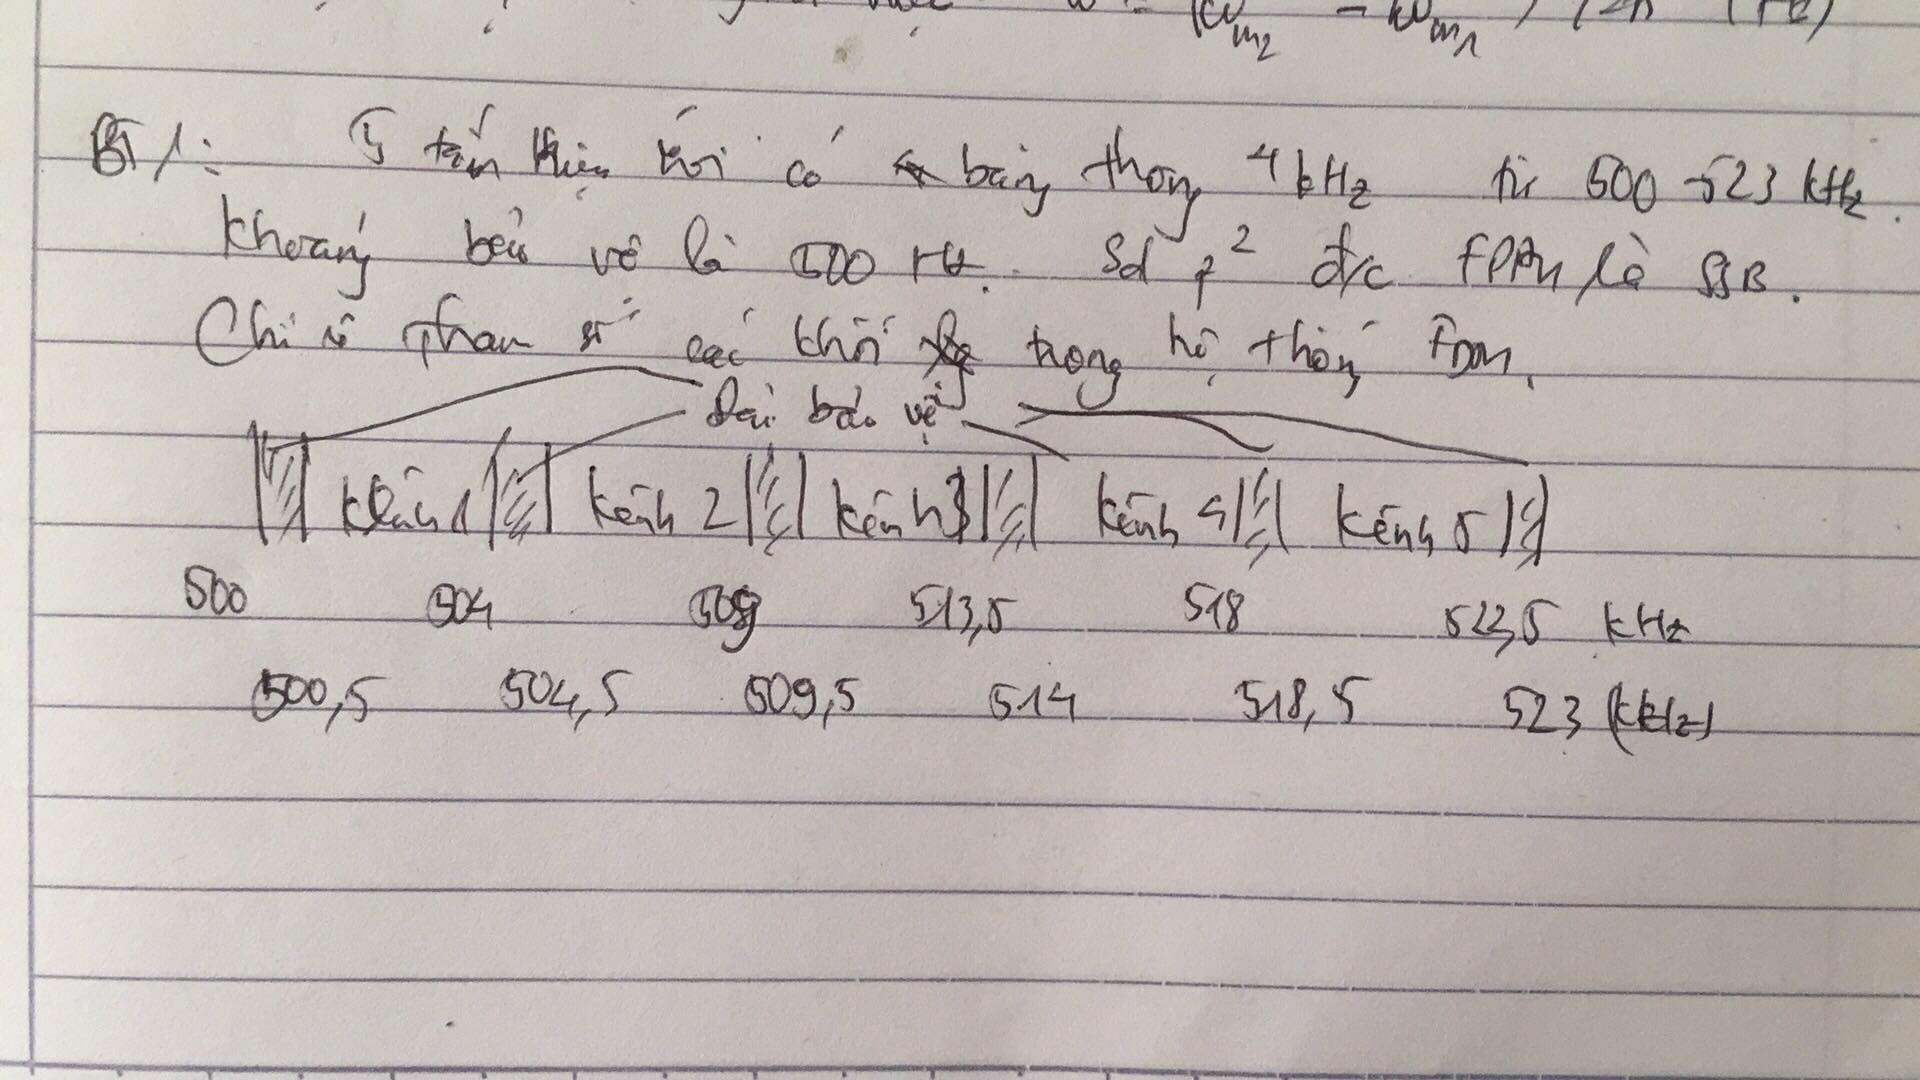 BT 1: 5 tín hiệu thoại có băng thông 4 kHz từ 500 - 523 kHz.
Khoảng bảo vệ là 500 Hz. Sd p² đ/c FDM là SSB.
Chỉ rõ tham số các khối trong hệ thống FDM.
Dải bảo vệ
kênh 1 kênh 2 kênh 3 kênh 4 kênh 5
500 504 509 513,5 518 522,5 kHz
500,5 504,5 509,5 514 518,5 523 (kHz)